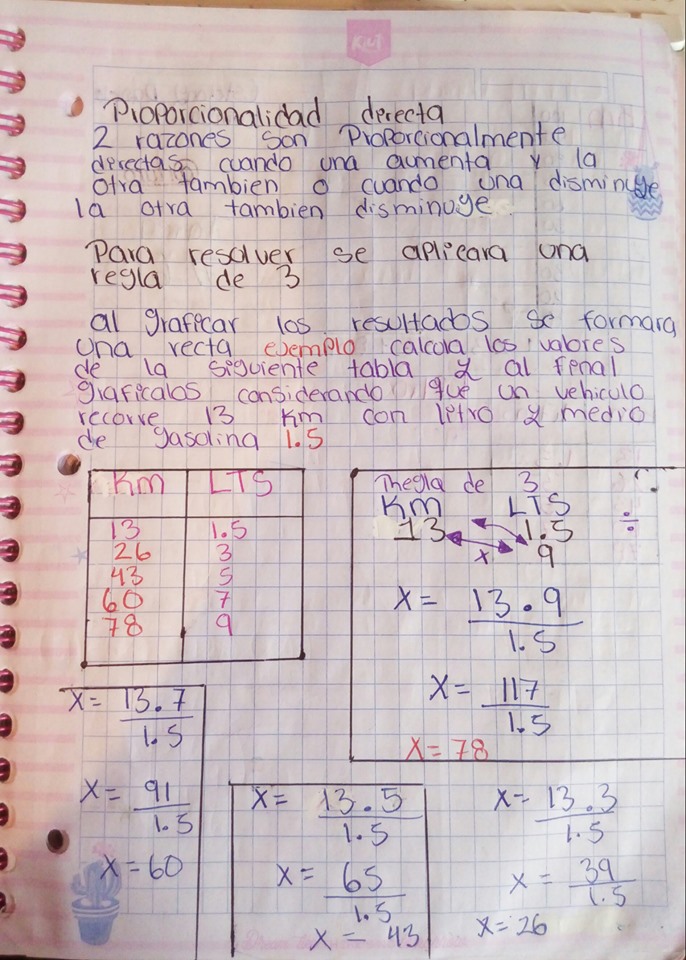 Proporcionalidad derecta
2 razones son Proporcionalmente
derectas cuando una aumenta y la
otra tambien o cuando una disminuye
la otra tambien disminuye
Para resolver se aplicara una
regla de 3
al graficar los resultados se formara
una recta ejemplo calcula los valores
de la siguiente tabla y al fenal
graficalos considerando que un vehiculo
recorre 13 Km con litro y medio
de gasolina 1.5
Km LTS
13 1.5
26 3
43 5
60 7
78 9
Rregla de 3
Km LTS
13 1.5
x 9
÷
x = 13.9
1.5
x = 117
1.5
x = 78
x = 13.7
1.5
x = 91
1.5
x = 60
x = 13.5
1.5
x = 65
1.5
x = 43
x = 13.3
1.5
x = 39
1.5
x = 26